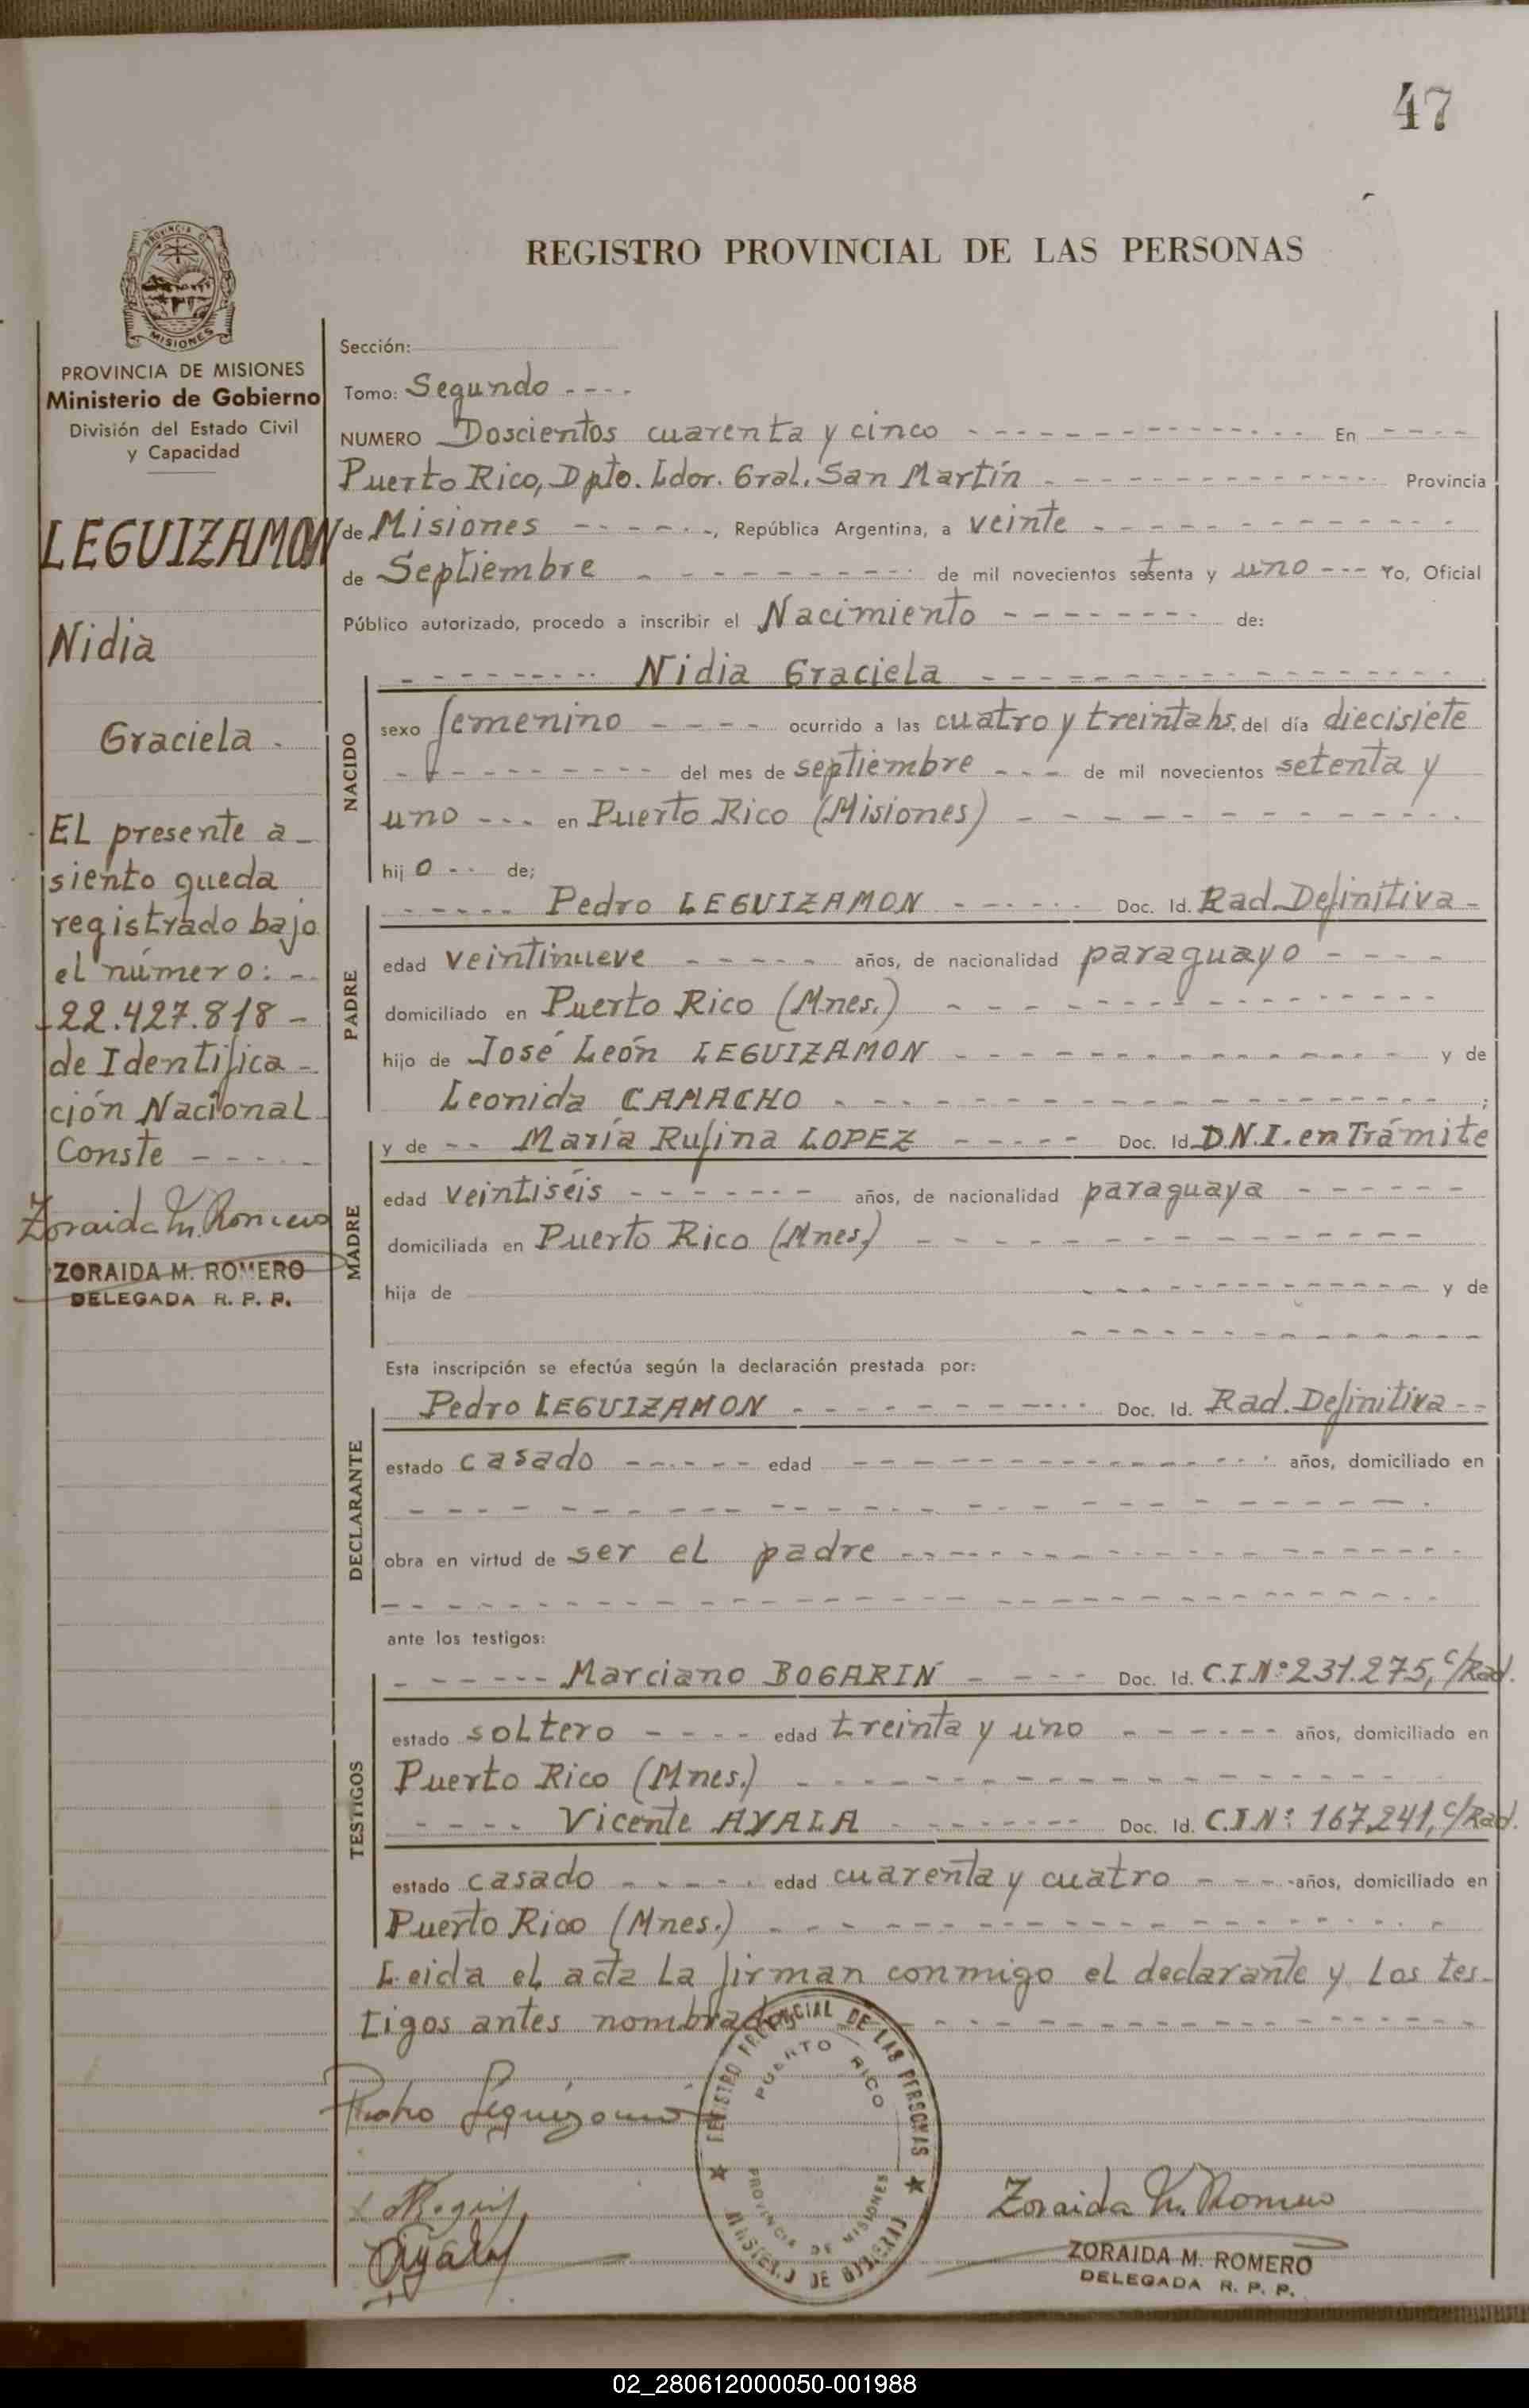 47
REGISTRO PROVINCIAL DE LAS PERSONAS
PROVINCIA DE MISIONES
Ministerio de Gobierno
División del Estado Civil
y Capacidad
LEGUIZAMON
Nidia
Graciela -
El presente a-
siento queda
registrado bajo
el número: -
- 22.427.818 -
de Identifica-
ción Nacional
Conste - - - - -
Zoraida M. Romero
ZORAIDA M. ROMERO
DELEGADA R. P. P.
Sección:
Tomo: Segundo - - - -
NUMERO Doscientos cuarenta y cinco - - - - En - - - -
Puerto Rico, Dpto. Ldor. Gral. San Martín - - - - Provincia
de Misiones - - - -, República Argentina, a veinte - - - -
de Septiembre - - - - de mil novecientos setenta y uno - - - Yo, Oficial
Público autorizado, procedo a inscribir el Nacimiento - - - - de:
- - - - Nidia Graciela - - - -
NACIDO
sexo femenino - - - - ocurrido a las cuatro y treinta hs. del día diecisiete
- - - - del mes de septiembre - - - de mil novecientos setenta y
uno - - - en Puerto Rico (Misiones) - - - -
hij o - - de;
PADRE
- - - - Pedro LEGUIZAMON - - - - Doc. Id. Rad. Definitiva -
edad veintinueve - - - - años, de nacionalidad paraguayo - - - -
domiciliado en Puerto Rico (Mnes.) - - - -
hijo de José León LEGUIZAMON - - - - y de
Leonida CAMACHO - - - - ;
MADRE
y de - - María Rufina LOPEZ - - - - Doc. Id. D.N.I. en Trámite
edad veintiséis - - - - años, de nacionalidad paraguaya - - - -
domiciliada en Puerto Rico (Mnes.) - - - -
hija de - - - - y de
- - - -
Esta inscripción se efectúa según la declaración prestada por:
DECLARANTE
Pedro LEGUIZAMON - - - - Doc. Id. Rad. Definitiva - -
estado casado - - - - edad - - - - años, domiciliado en
- - - -
obra en virtud de ser el padre - - - -
- - - -
ante los testigos:
TESTIGOS
- - - - Marciano BOGARIN - - - - Doc. Id. C.I.Nº 231.275, c/Rad.
estado soltero - - - - edad treinta y uno - - - - años, domiciliado en
Puerto Rico (Mnes.) - - - -
- - - - Vicente AYALA - - - - Doc. Id. C.I.Nº: 167.241, c/Rad.
estado casado - - - - edad cuarenta y cuatro - - - - años, domiciliado en
Puerto Rico (Mnes.) - - - -
Leida el acta la firman conmigo el declarante y los tes-
tigos antes nombrados - - - -
REGISTRO PROVINCIAL DE LAS PERSONAS
PUERTO RICO
PROVINCIA DE MISIONES
Pedro Leguizamon
Ayala
Zoraida M. Romero
ZORAIDA M. ROMERO
DELEGADA R. P. P.
02_280612000050-001988